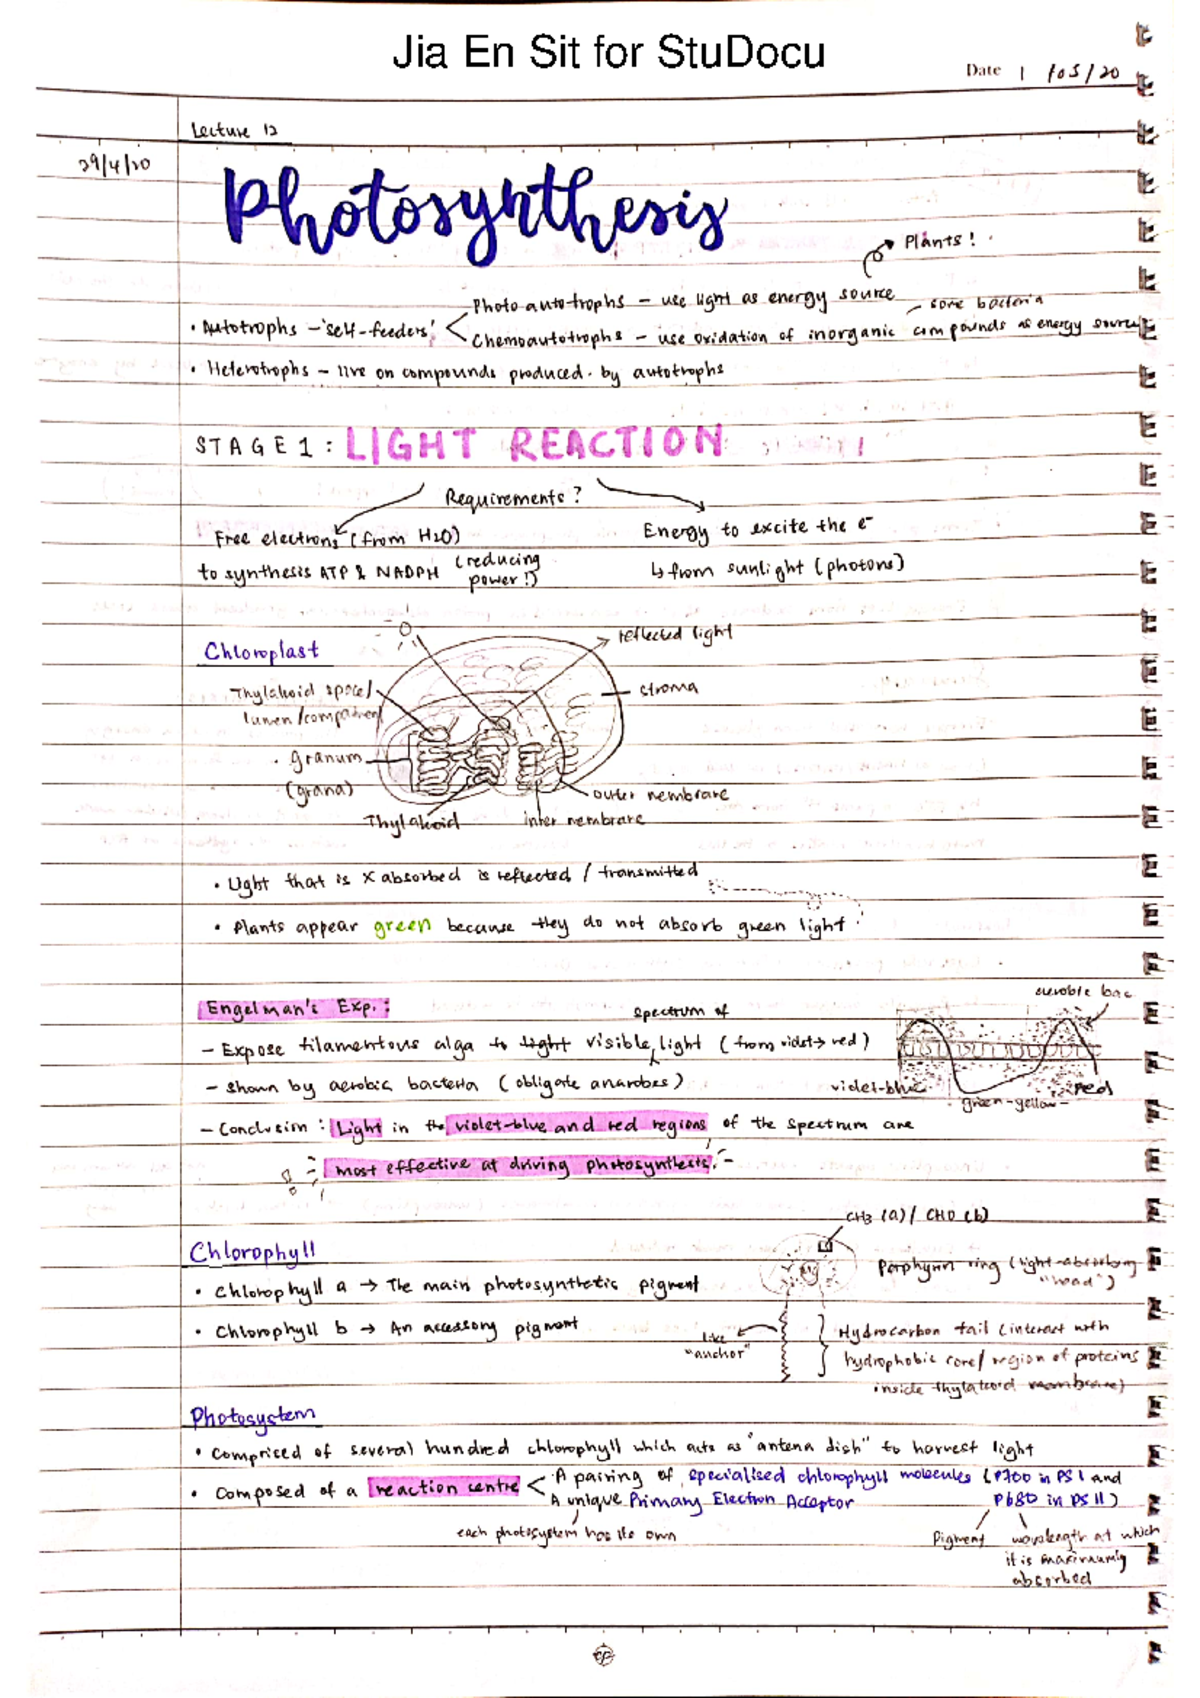 Jia En Sit for StuDocu
Date 1 /05/20
Lecture 12
29/4/20
Photosynthesis
Plants!
Photoautotrophs - use light as energy source
some bacteria
• Autotrophs - 'self-feeders'
Chemoautotrophs - use oxidation of inorganic compounds as energy source
• Heterotrophs - live on compounds produced by autotrophs
STAGE 1: LIGHT REACTION
Requirements?
Free electrons (from H2O)
to synthesis ATP & NADPH (reducing power!)
Energy to excite the e-
↳ from sunlight (photons)
Chloroplast
reflected light
Thylakoid space/
lumen/compartment
stroma
granum
(grana)
outer membrane
Thylakoid
inner membrane
• Light that is x absorbed is reflected / transmitted
• Plants appear green because they do not absorb green light
Engelman's Exp.:
aerobic bac
spectrum of
- Expose filamentous alga to light visible light (from violet → red)
- shown by aerobic bacteria (obligate anarobes)
violet-blue
green-yellow
red
- Conclusion: Light in the violet-blue and red regions of the spectrum are
most effective at driving photosynthesis.
CH3 (a) / CHO (b)
Chlorophyll
Porphyrin ring (light-absorbing
"head")
• Chlorophyll a → The main photosynthetic pigment
• Chlorophyll b → An accessory pigment
like
"anchor"
Hydrocarbon tail (interact with
hydrophobic core/region of proteins
inside thylakoid membrane)
Photosystem
• Comprised of several hundred chlorophyll which acts as "antena dish" to harvest light
• composed of a reaction centre
A pairing of specialised chlorophyll molecules (P700 in PS I and
P680 in PS II)
A unique Primary Electron Acceptor
each photosystem has its own
Pigment
wavelength at which
it is maximumly
absorbed